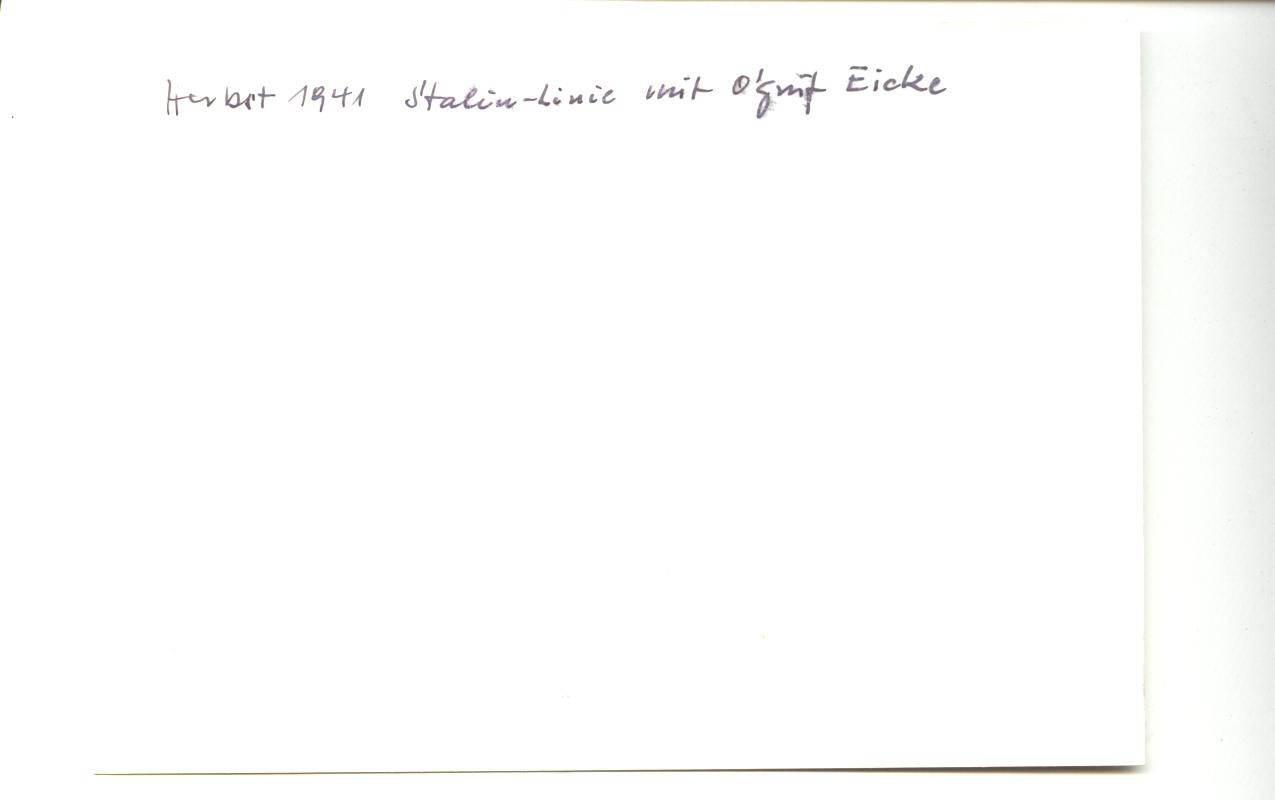 Herbst 1941 Stalin-Linie mit O'gruf Eicke